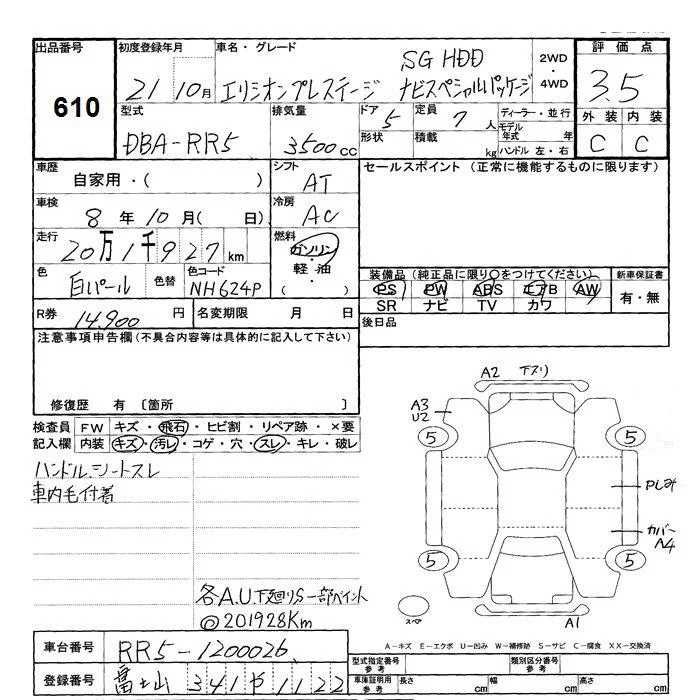 出品番号 610
初度登録年月 21 10月
車名・グレード エリシオンプレステージ SG HDD ナビスペシャルパッケージ
2WD・4WD
評価点 3.5
外装 内装
C C
型式 DBA-RR5
排気量 3500cc
ドア 5
定員 7人
形状
積載 kg
ディーラー・並行
モデル年式 年
ハンドル 左・右
車歴 自家用・( )
シフト AT
セールスポイント (正常に機能するものに限ります)
車検 8年10月( 日)
冷房 AC
走行 20万1千927km
燃料 ガソリン・軽・油 ( )
色 白パール 色替
色コード NH624P
装備品 (純正品に限り○をつけてください)
PS PW ABS エアB AW
SR ナビ TV カワ
新車保証書 有・無
R券 14,900円
名変期限 月 日
後日品
注意事項申告欄(不具合内容等は具体的に記入して下さい)
修復歴 有 〔箇所 〕
検査員記入欄
FW キズ・飛石・ヒビ割・リペア跡・×要
内装 キズ・汚レ・コゲ・穴・スレ・キレ・破レ
ハンドル.シートスレ
車内毛付着
各A.U.下廻りS一部ペイント
@201928Km
A2 下スリ
A3
U2
5 5
Pしみ
カバー
A4
5 5
スペア
A1
A-キズ E-エクボ U-凹み W-補修跡 S-サビ C-腐食 XX-交換済
車台番号 RR5-1200026
登録番号 富士山 341 や 1122
型式指定番号 参考
類別区分番号 参考
車庫証明用 参考
長さ cm 幅 cm 高さ cm